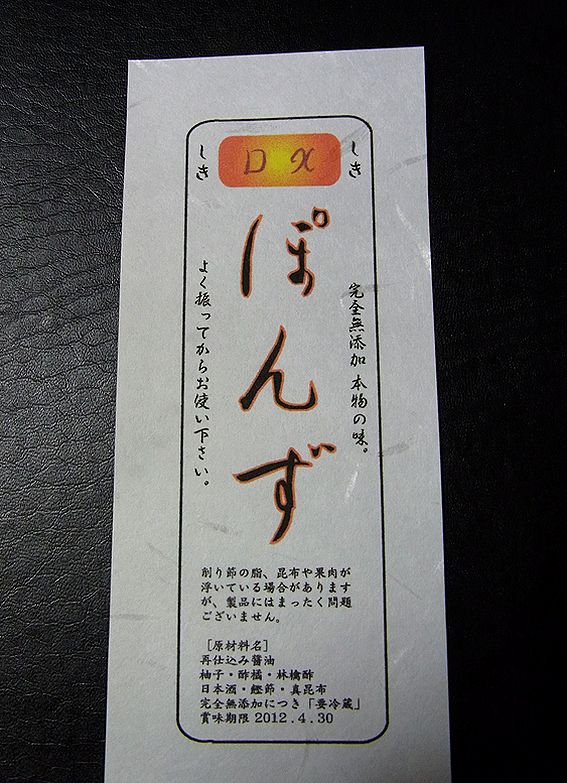 しき
DX
しき
ぽんず
完全無添加 本物の味。
よく振ってからお使い下さい。
削り節の脂、昆布や果肉が
浮いている場合があります
が、製品にはまったく問題
ございません。
［原材料名］
再仕込み醤油
柚子・酢橘・林檎酢
日本酒・鰹節・真昆布
完全無添加につき「要冷蔵」
賞味期限 2012.4.30